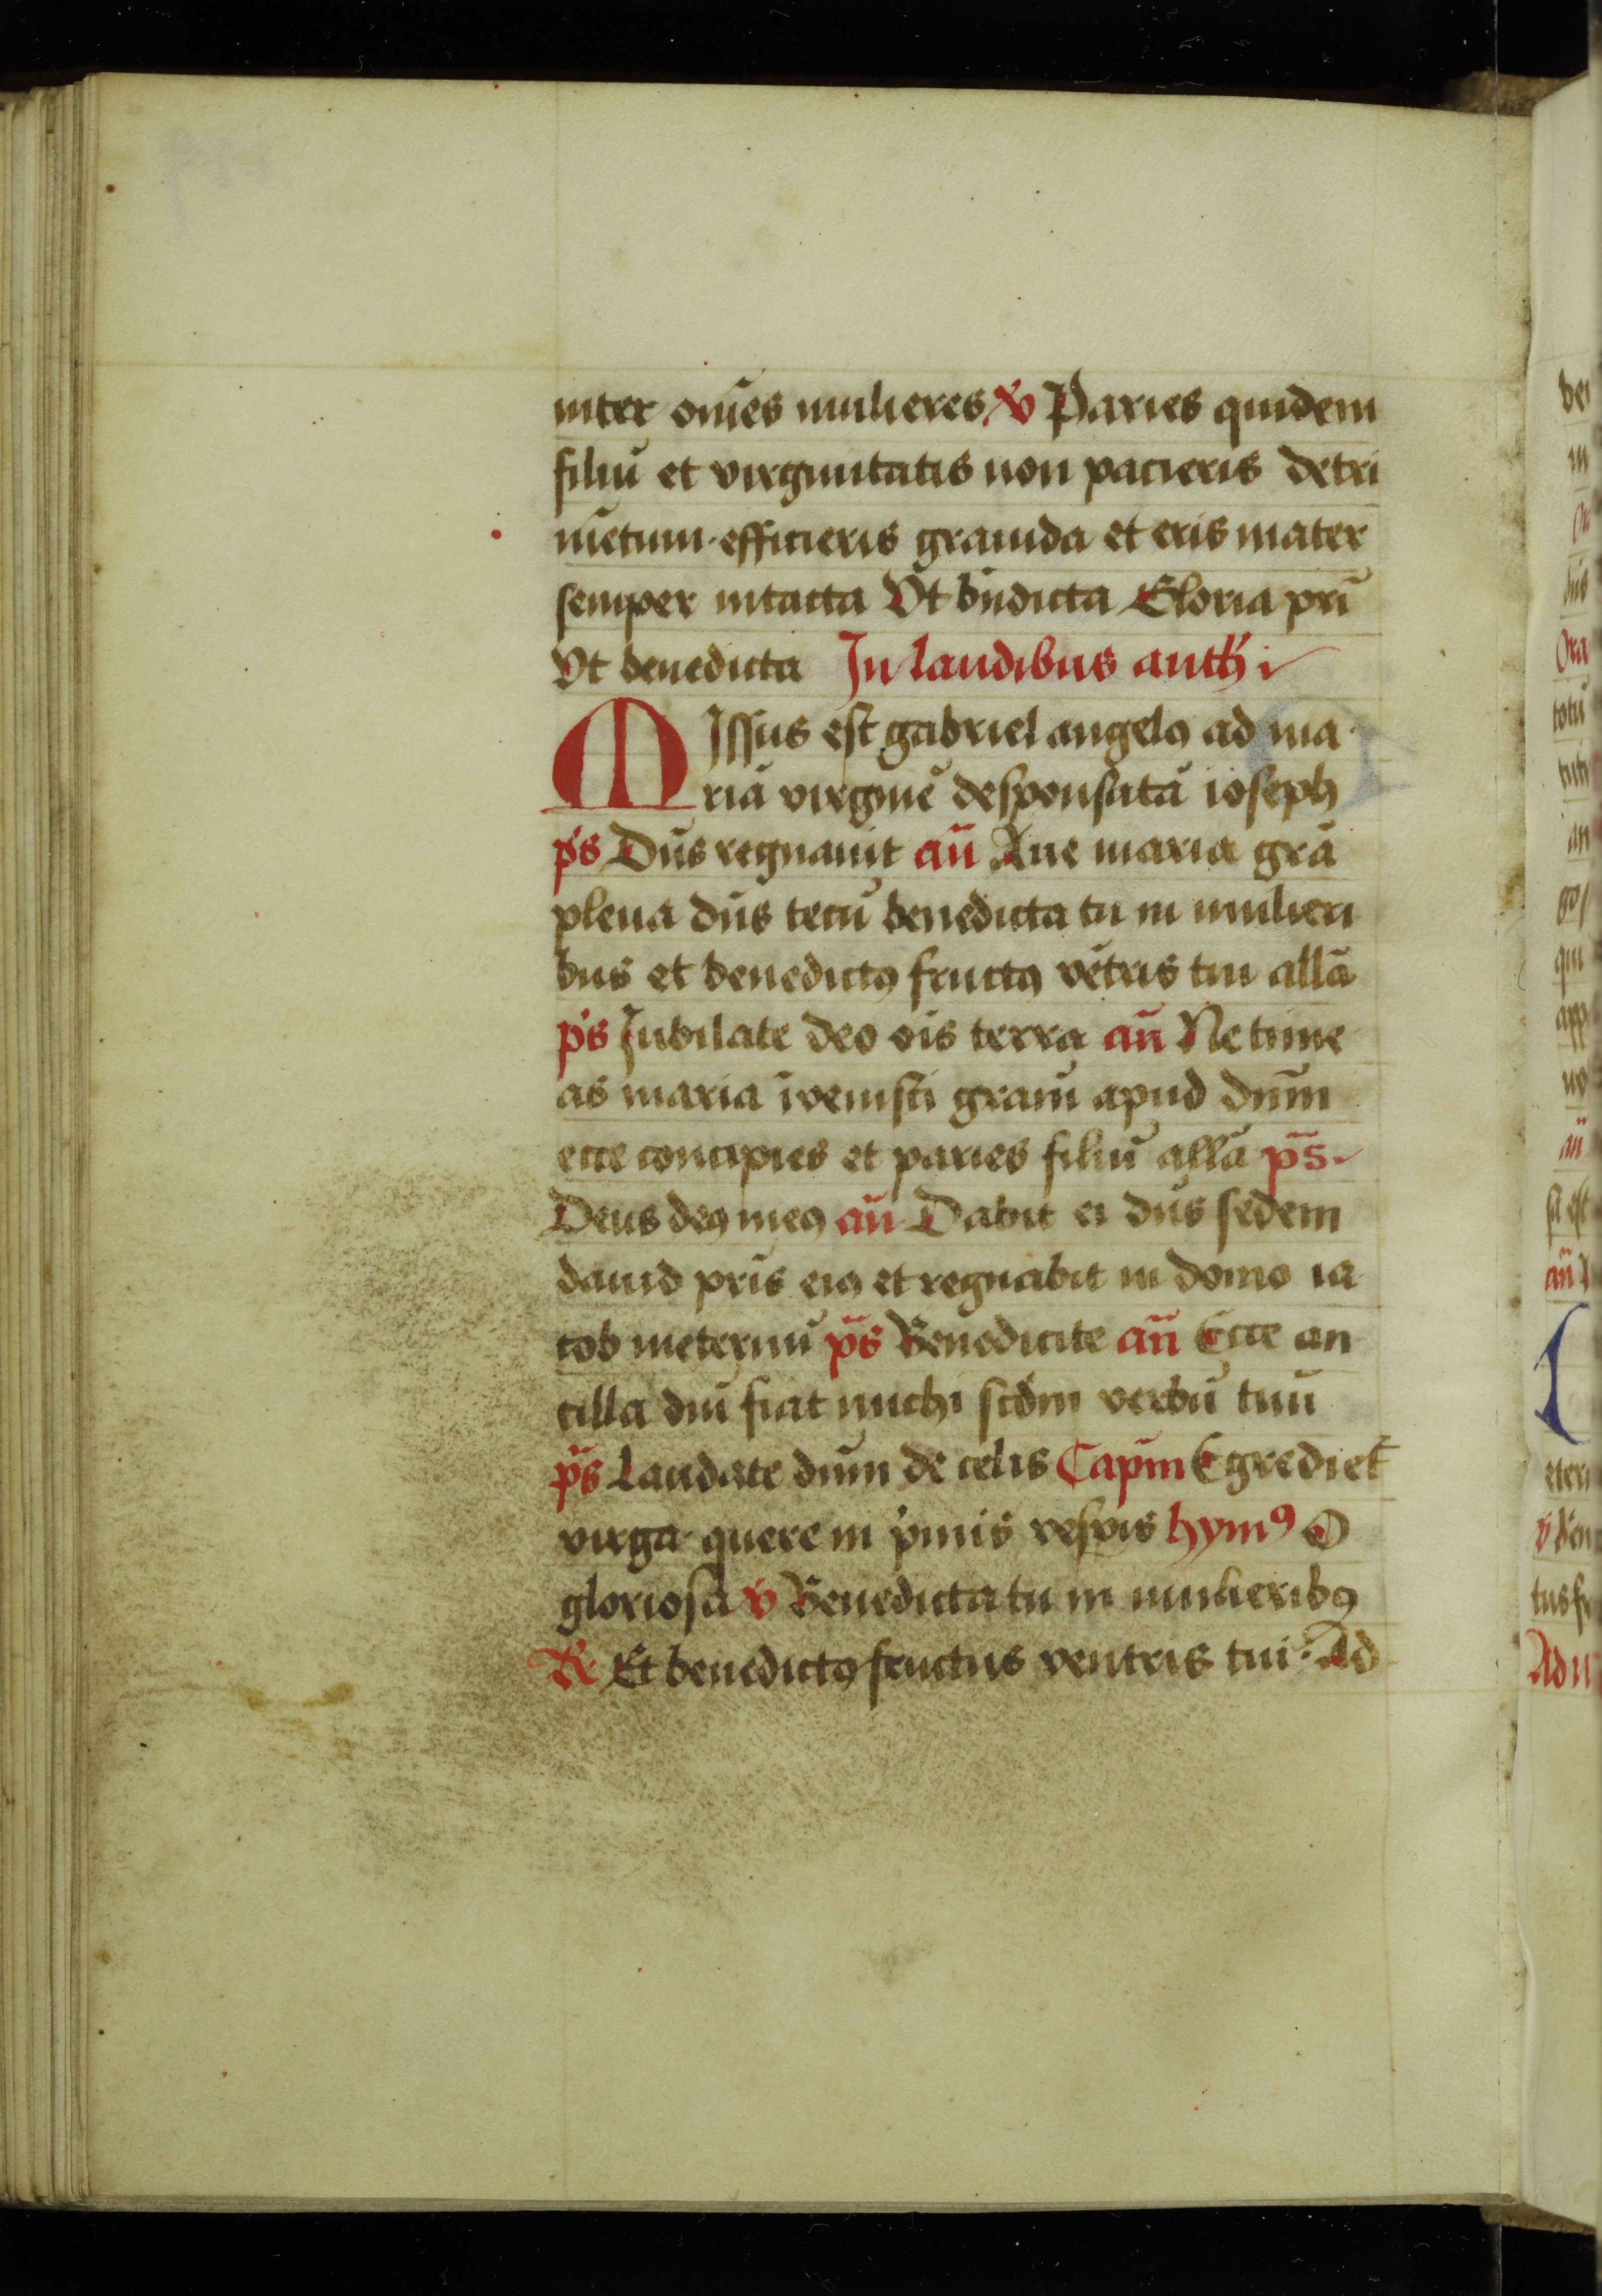 inter om̄es mulieres ꝟ Paries quidem
filiū et virginitatis non pacieris detri
mētum · efficieris grauida et eris mater
semper intacta Vt bn̄dicta Gloria pr̄i
Vt benedicta In laudibus anth i
MIssus est gabriel angelꝯ ad ma
riā virginē desponsatā ioseph
ps Dn̄s regnauit an̄ Aue maria gr̄a
plena dn̄s tecū benedicta tu in mulieri
bus et benedictꝯ fructꝯ vētris tui all̄a
ps Iubilate deo ōis terra an̄ Ne time
as maria īvenisti gr̄am apud dn̄m
ecce concipies et paries filiū all̄a ps̄
Deus deꝯ meꝯ an̄ Dabit ei dn̄s sedem
dauid pr̄is eiꝯ et regnabit in domo ia
cob ineternū ps̄ Benedicite an̄ Ecce an
cilla dn̄i fiat michi scd̄m verbū tuū
ps̄ Laudate dn̄m de celis Capm̄ Egrediet᷑
virga · quere in p̍mis vesꝑis hymꝯ O
gloriosa ꝟ Benedicta tu in mulieribꝯ
℞ Et benedictꝯ fructus ventris tui · Ad